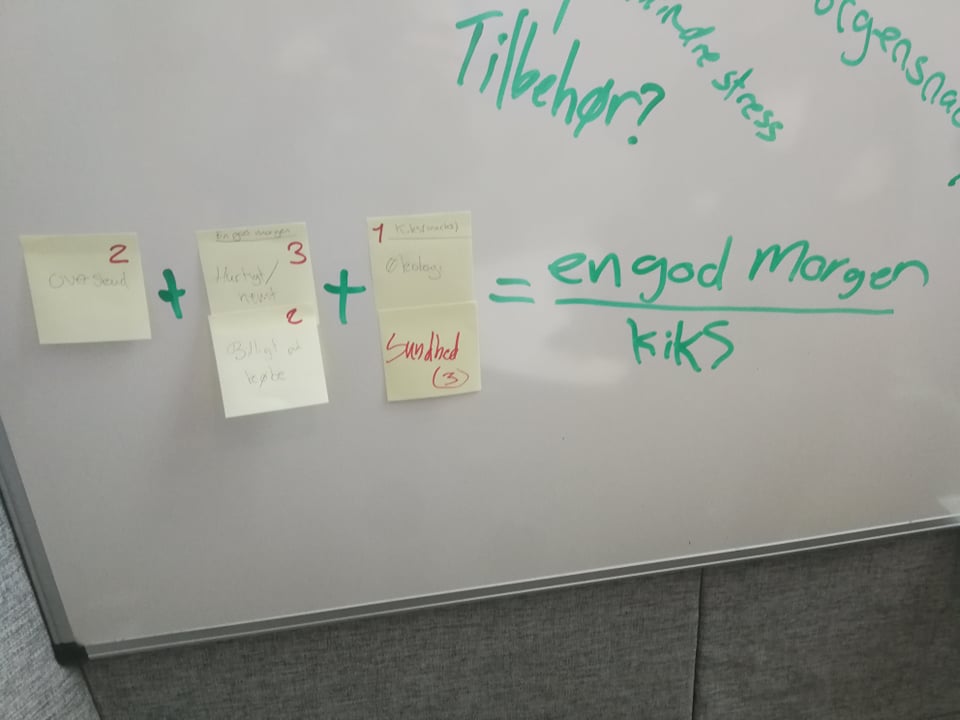 mindre stress
Tilbehør?
2
Overskud
+
En god morgen
3
Hurtigt/
nemt
2
Billigt at
købe
+
1 Kiks(snacks)
Økologi
Sundhed
(3)
= en god Morgen
kiks